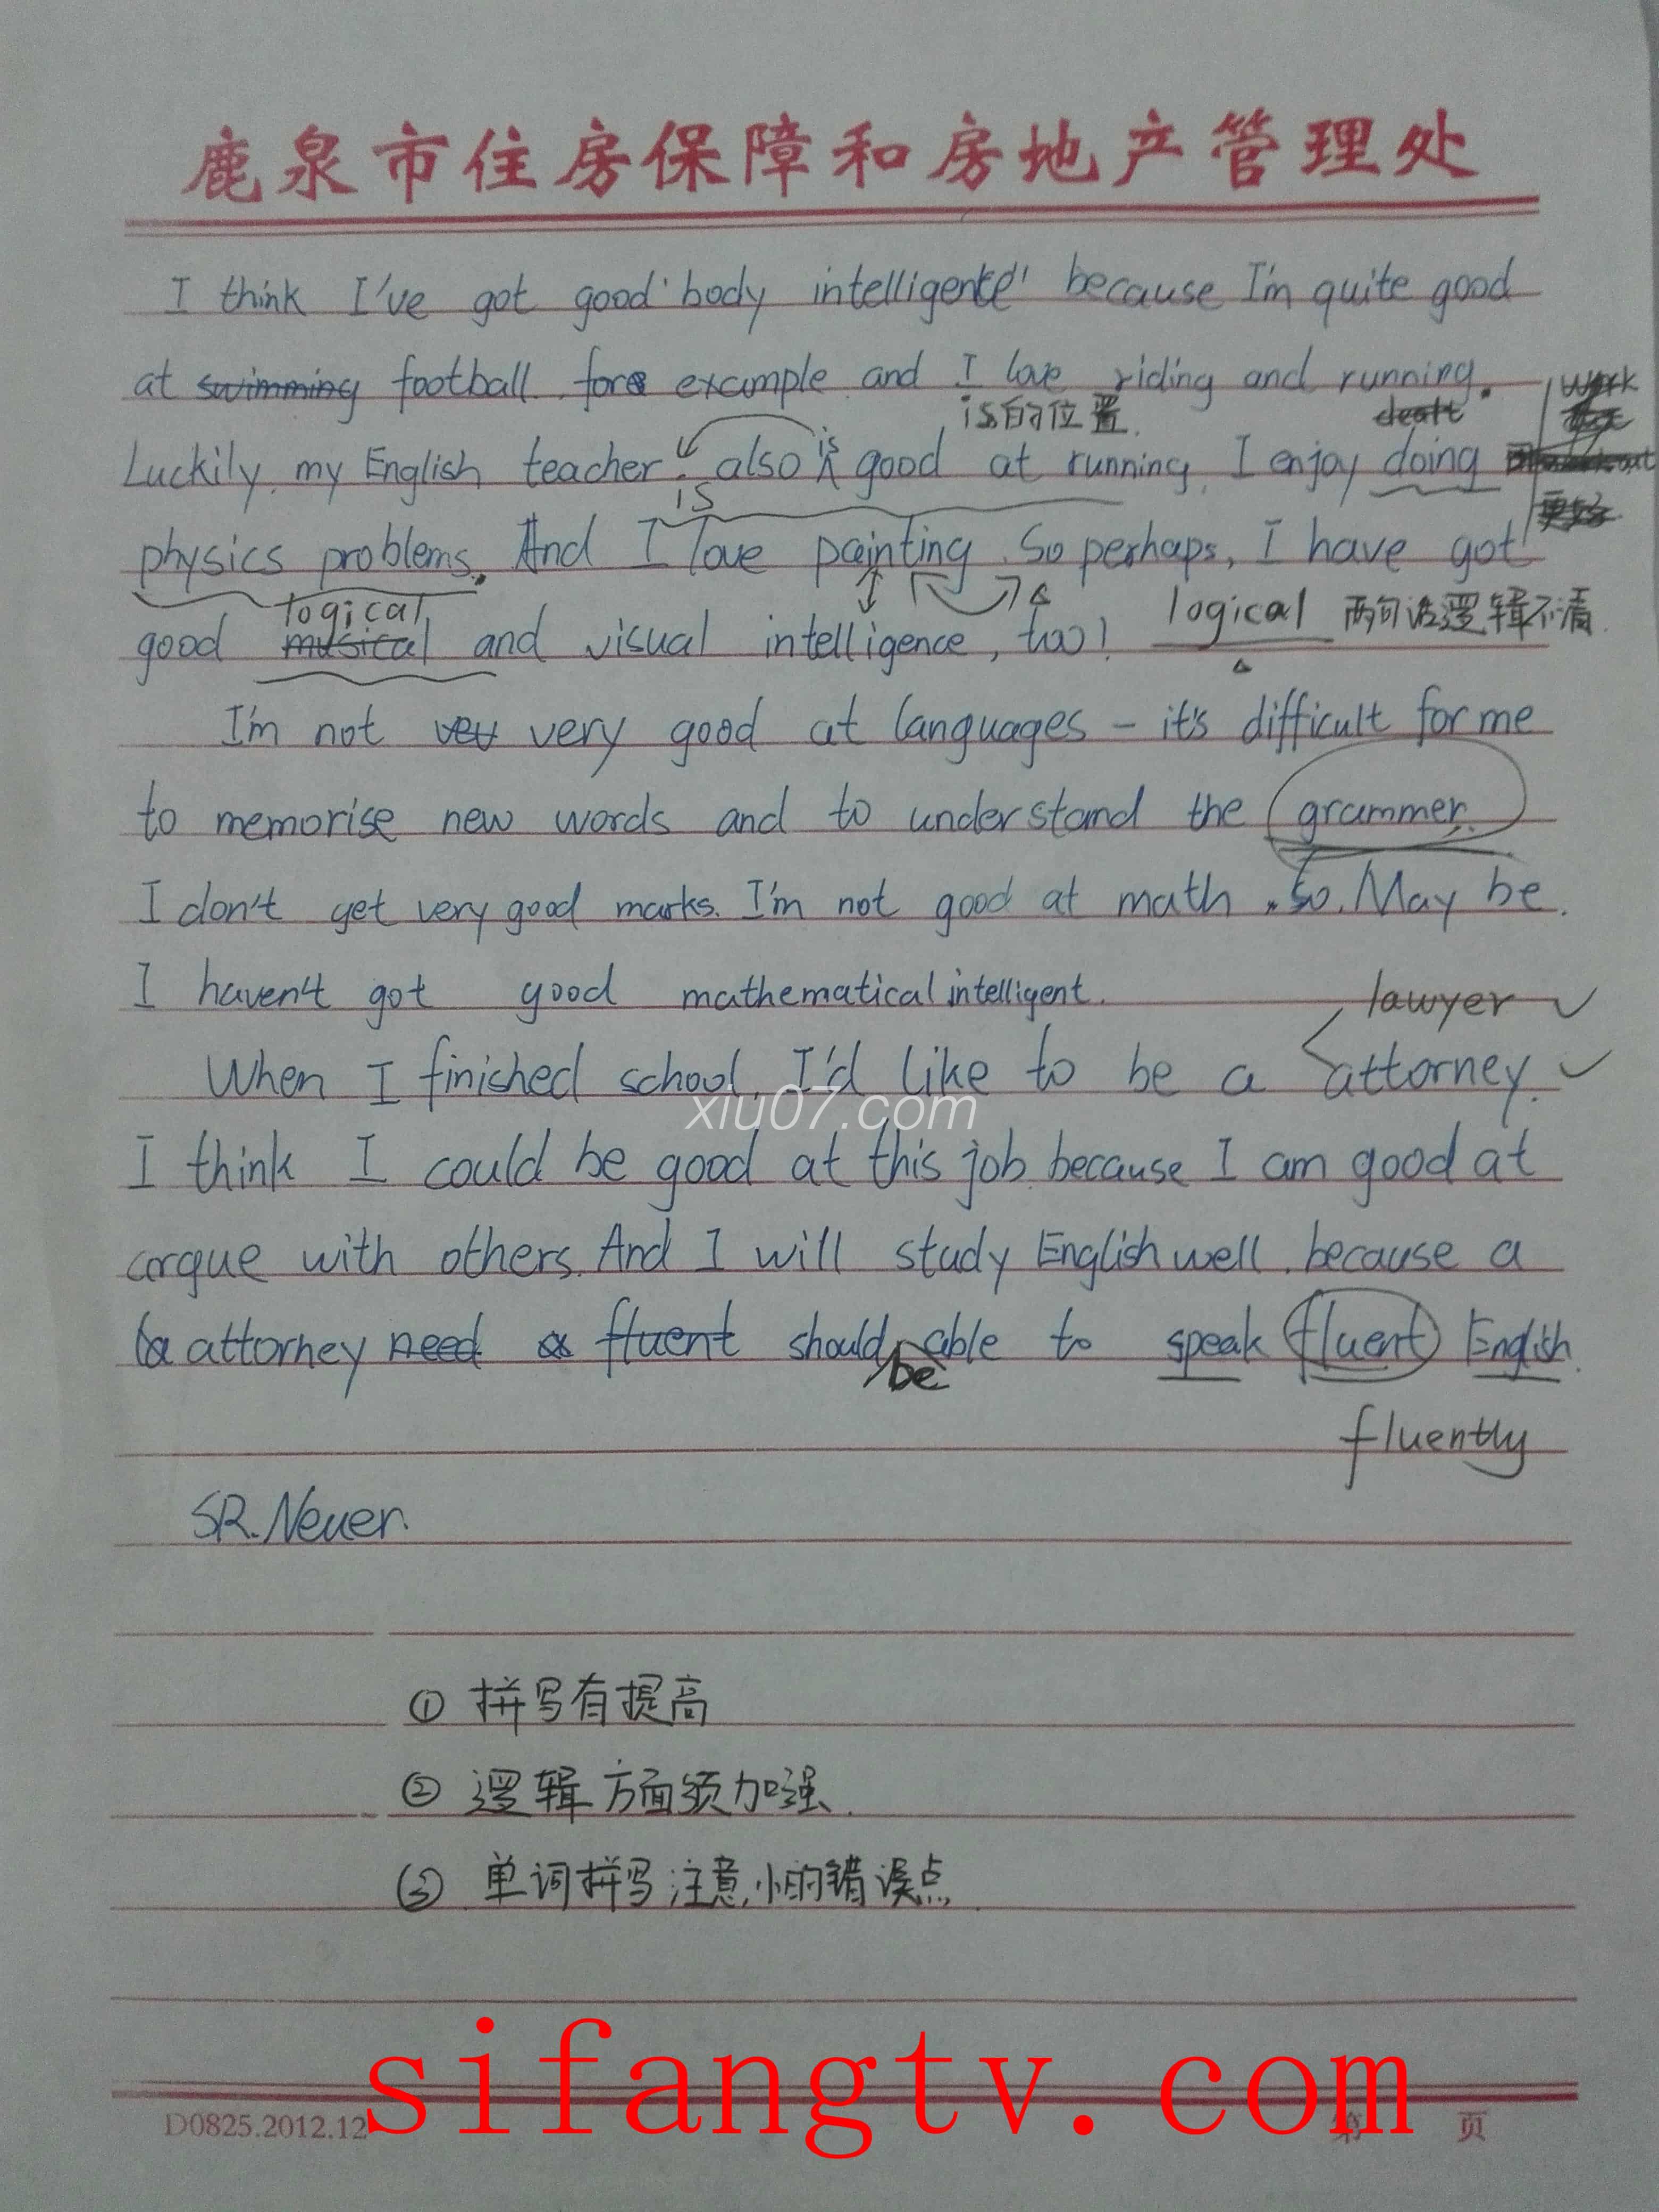 鹿泉市住房保障和房地产管理处
I think I've got good 'body intelligence' because I'm quite good
at swimming football. for example and I love riding and running.
is的位置. dealt work
Luckily, my English teacher also is good at running. I enjoy doing
is
physics problems. And I love painting. So perhaps, I have got
logical logical 两句话逻辑不清
good musical and visual intelligence, too!
I'm not very good at languages – it's difficult for me
to memorise new words and to understand the grammer.
I don't get very good marks. I'm not good at math. So. May be.
I haven't got good mathematical intelligent.
lawyer ✓
When I finished school, I'd like to be a attorney. ✓
I think I could be good at this job because I am good at
argue with others. And I will study English well. because a
attorney need a fluent should able to speak fluent English.
be
fluently
SR.Neuer.
① 拼写有提高
② 逻辑方面须加强.
③ 单词拼写注意小的错误点
xiu07.com
sifangtv.com
D0825.2012.12 第 页